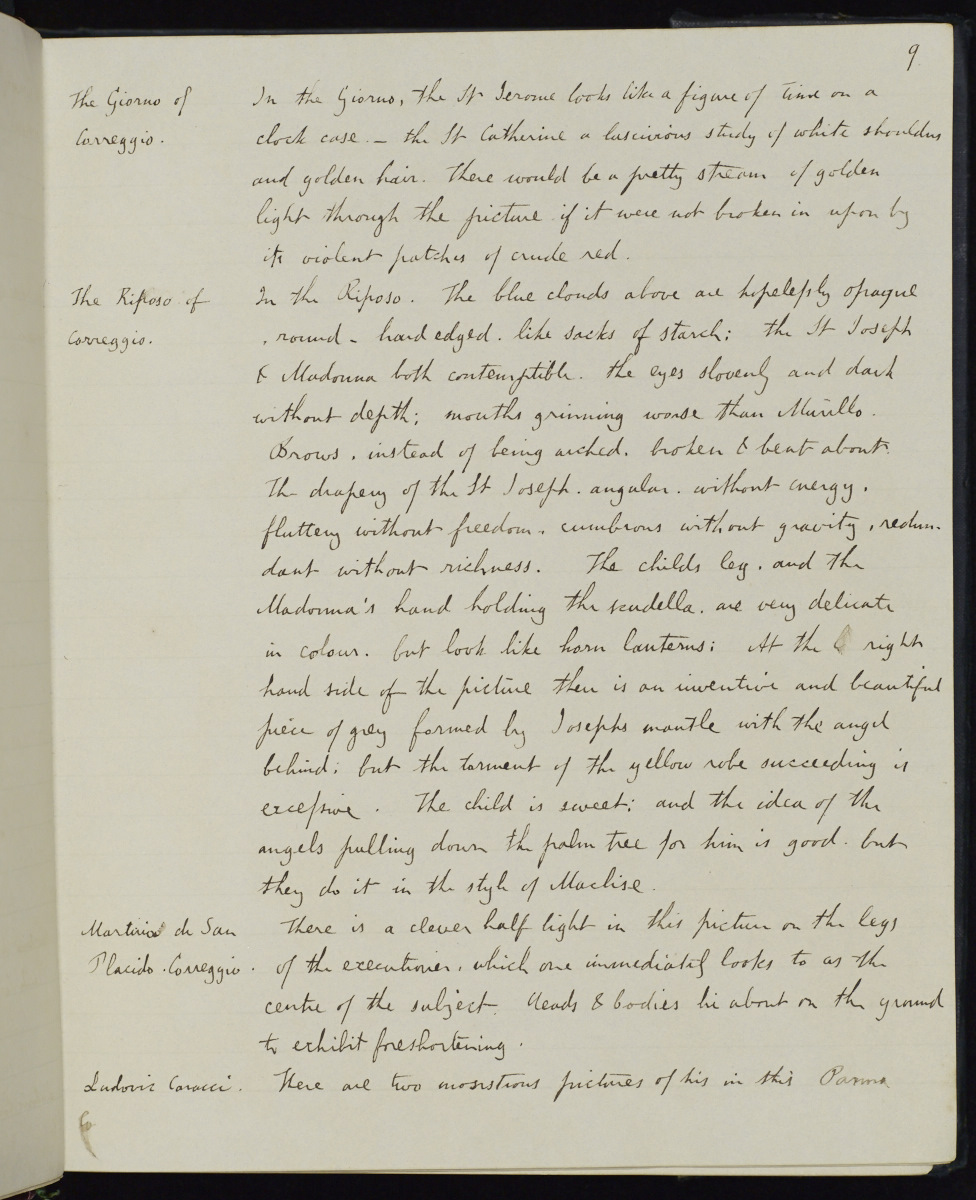 9
The Giorno of
Correggio.
In the Giorno, the St Jerome looks like a figure of Time on a
clock case. – the St Catherine a lascivious study of white shoulders
and golden hair. There would be a pretty stream of golden
light through the picture if it were not broken in upon by
its violent patches of crude red.
The Riposo of
Correggio.
In the Riposo. The blue clouds above are hopelessly opaque
. round – hard edged. like sacks of starch; the St Joseph
& Madonna both contemptible. the eyes slovenly and dark
without depth; mouths grinning worse than Murillo.
Brows. instead of being arched. broken & bent about.
The drapery of the St Joseph. angular. without energy.
fluttery without freedom. cumbrous without gravity, redun-
dant without richness. The childs leg. and the
Madonna's hand holding the scudella. are very delicate
in colour. but look like horn lanterns; At the right
hand side of the picture there is an inventive and beautiful
piece of grey formed by Josephs mantle with the angel
behind; but the torment of the yellow robe succeeding is
excessive. The child is sweet; and the idea of the
angels pulling down the palm tree for him is good. but
they do it in the style of Maclise.
Martirio de San
Placido. Correggio.
There is a clever half light in this picture on the legs
of the executioner, which one immediately looks to as the
centre of the subject. Heads & bodies lie about on the ground
to exhibit foreshortening.
Ludovic Caracci.
There are two monstrous pictures of his in this Parma